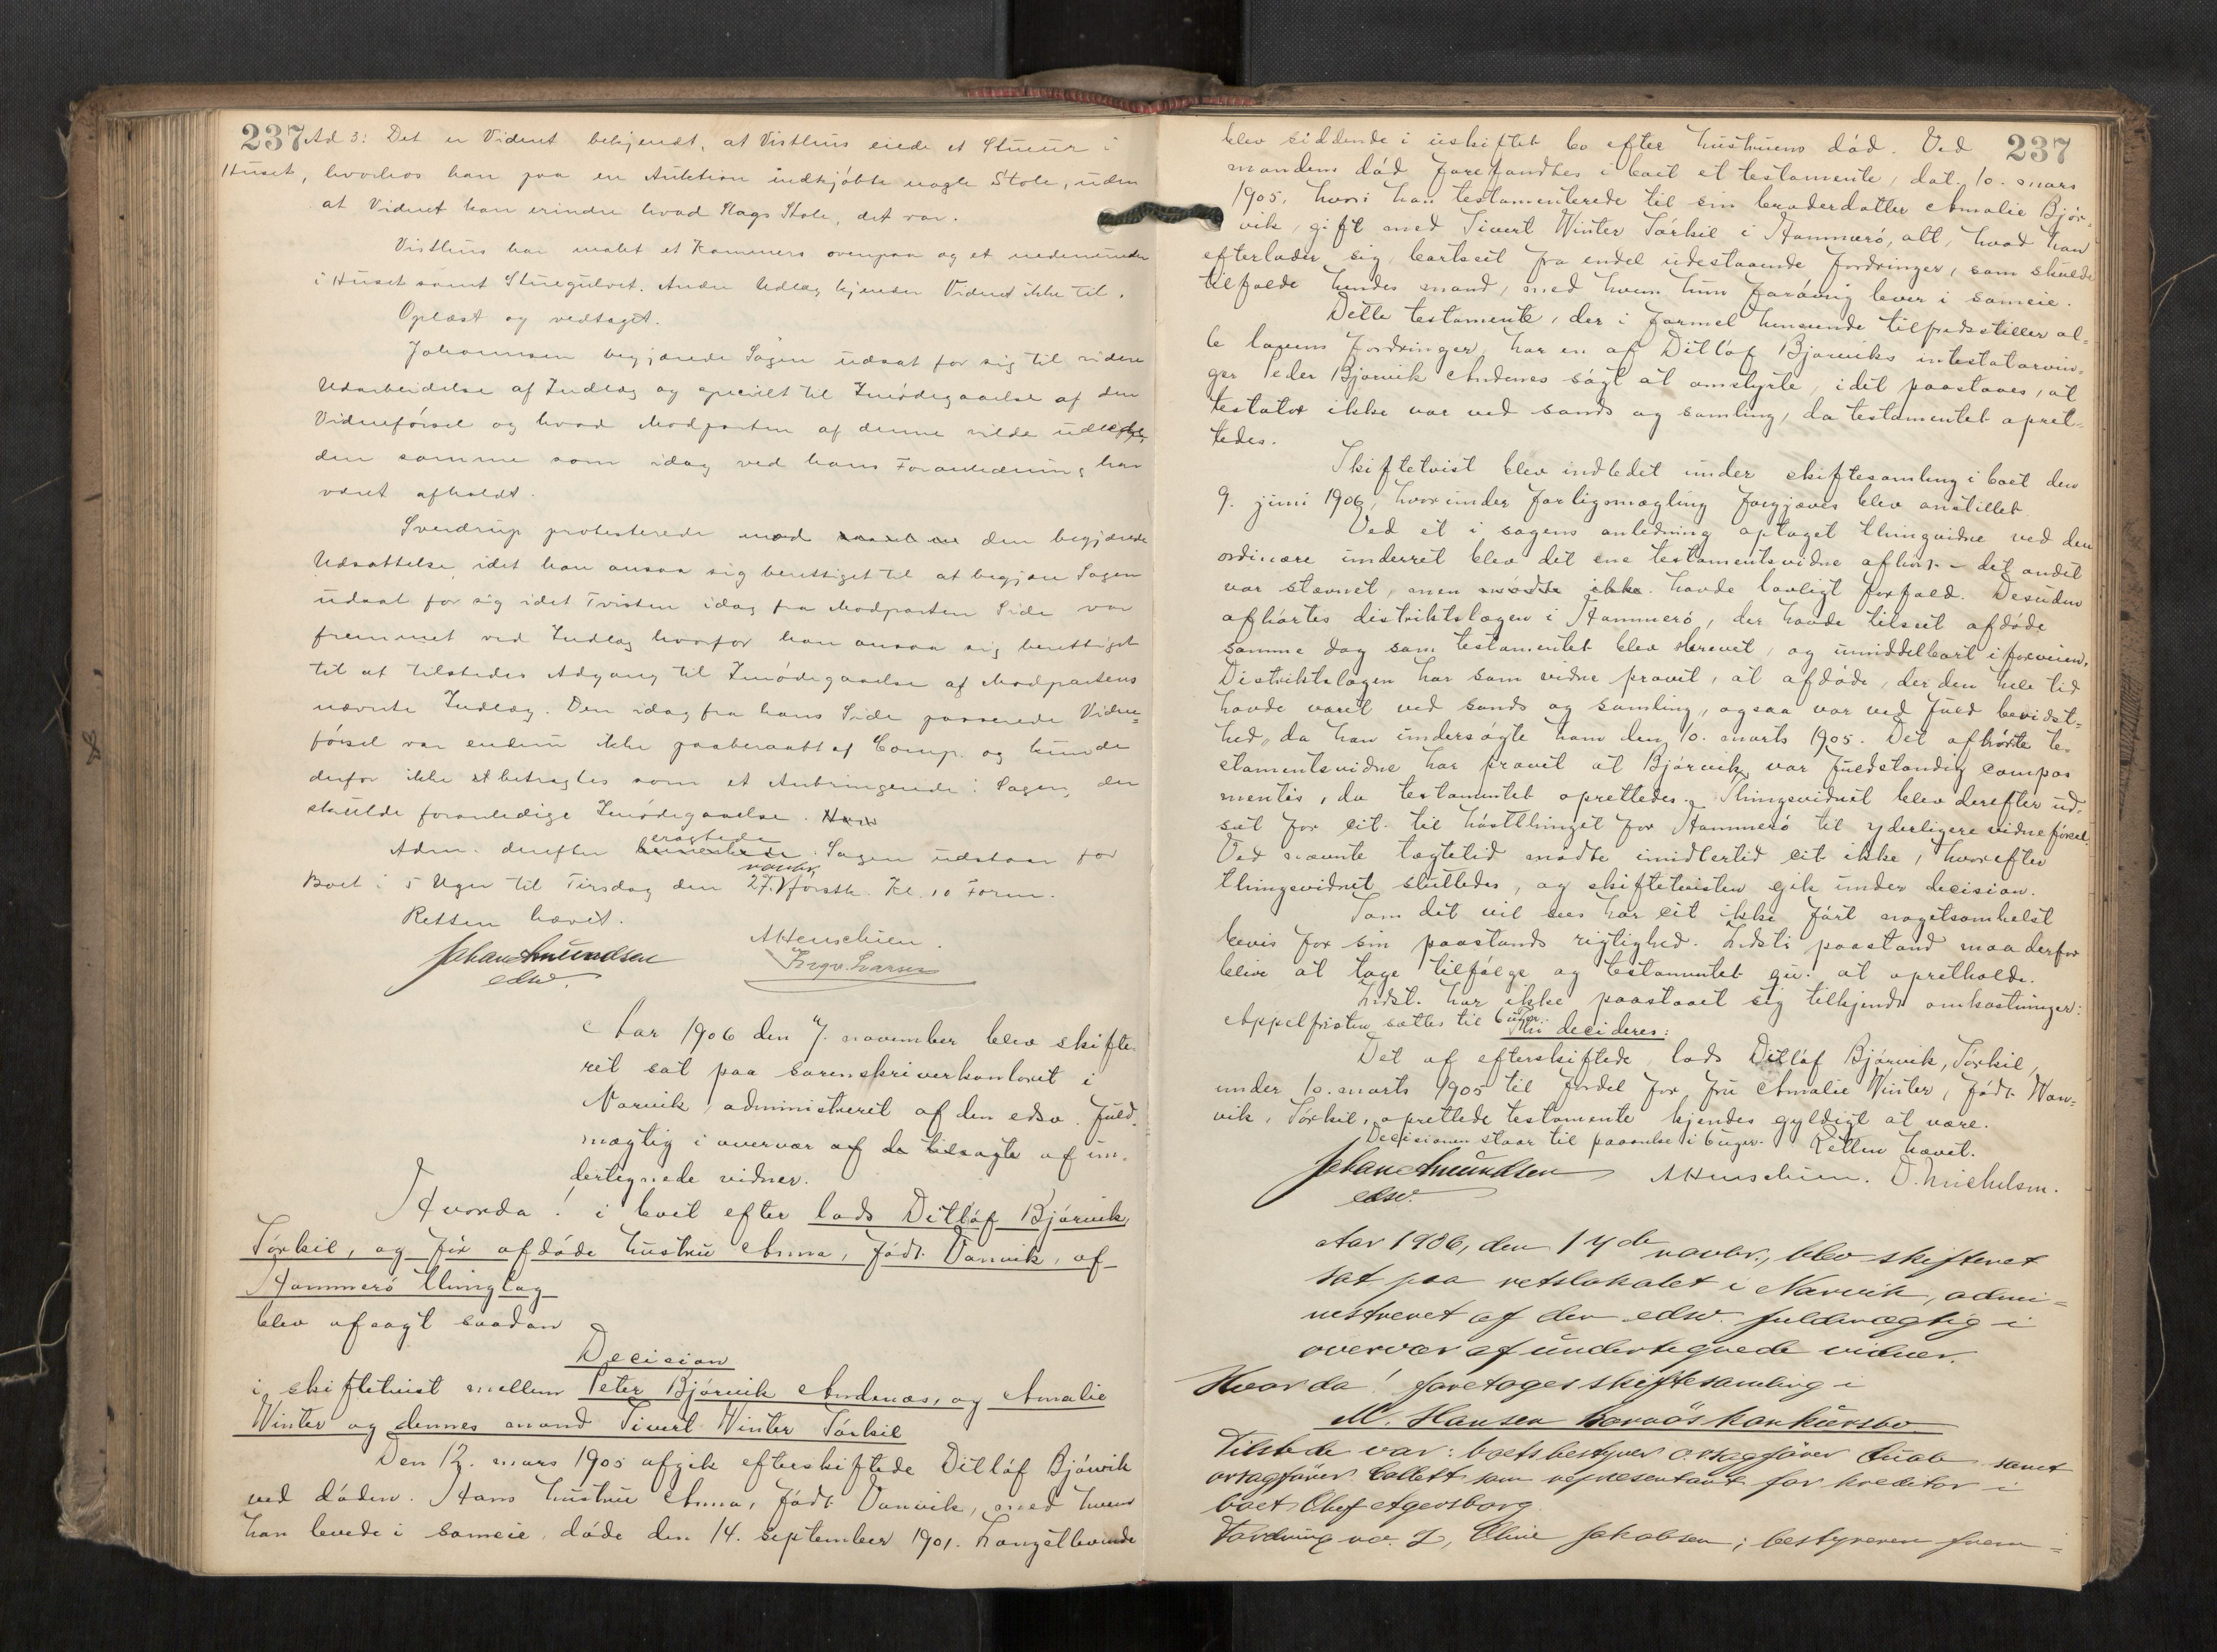 237 Ad 3: Det er Vidnet bekjendt, at Visthus eiede et Stueur i
Huset, hvorhos han paa en Auktion indkjöbte nogle Stole, uden
at Vidnet kan erindre hvad Slags Stole, det var.
Visthus har malet et Kammers ovenpaa og et nedenunder
i Huset samt Stuegulvet. Andre Udlæg kjender Vidnet ikke til.
Oplæst og vedtaget.
Johannesen begjærede Sagen udsat for sig til videre
Udarbeidelse af Indlæg og specielt til Imödegaaelse af den
Vidneförsel og hvad Modparten af denne vilde udlede,
den samme som idag ved hans Foranledning har
været afholdt.
Sverdrup protesterede mod den begjærede
Udsættelse idet han ansaa sig berettiget til at begjære Sagen
udsat for sig idet Tvisten idag fra Modparten Side var
fremmet ved Indlæg hvorfor han ansaa sig berettiget
til at tilstedes Adgang til Imödegaaelse af Modpartens
nævnte Indlæg. Den idag fra hans Side passerede Vidne=
försel var endnu ikke paaberaabt af Comp. og kunde
derfor ikke betragtes som et Anbringende i Sagen, der
skulde foranledige Imödegaaelse.
eragtede
Adm. derefter Sagen udstaa for
novbr.
Boet i 5 Uger til Tirsdag den 27. förstk. Kl. 10 Form.
Retten hævet.
Johan Amundsen
edsv.
A Henschien.
Ingv. Larsen
Aar 1906 den 7. november blev skifte
ret sat paa sorenskriverkontoret i
Narvik, administreret af den edsv. fuld.
mægtig i overvær af de tilsagte af un.
dertegnede vidner.
Hvorda! i boet efter lods Ditlöf Björvik,
Törkil, og för afdöde hustru Anna, född. Vanvik, af
Hammerö thinglag
blev afsagt saadan
Decision
i skiftetvist mellem Peter Björvik Andenæs, og Amalie
Winter og dennes mand Sivert Winter Törkil
Den 12. mars 1905 afgik efterskiftede Ditlöf Bjövik
ved döden. Hans hustru Anna, född. Vanvik, med hvem
han levede i sameie, döde den 14. september 1901. Længstlevende
237
blev siddende i uskiftet bo efter hustruens död. Ved
mandens död forefandtes i boet et testamente, dat. 10. mars
1905, hvori han testamenterede til sin broderdatter Amalie Björ.
vik, gift med Sivert Winter Törkil i Hammerö, alt, hvad han
efterlader sig, bortseet fra endel udestaaende fordringer, som skulde
tilfalde hendes mand, med hvem hun forövrig lever i sameie.
Dette testamente, der i formel henseende tilfredsstiller al=
le lovens fordringer, har en af Ditlöf Bjørviks intestatarvin=
ger Peder Bjørvik Andenes sögt at omstyrte, idet paastaaes, at
testator ikke var ved sands og samling, da testamentet opret=
tedes.
Skiftetvist blev indledet under skiftesamling i boet den
9. juni 1906, hvorunder forligsmægling forgjæves blev anstillet
Ved et i sagens anledning optaget thingvidne ved den
ordinære underret blev det ene testamentsvidne afhört - det andet
var stævnet, men mödte ikke. havde lovligt forfald. Desuden
afhörtes distriktslægen i Hammerö, der havde tilseet afdöde
samme dag som testamentet blev skrevet, og umiddelbart i forveien.
Distriktslægen har som vidne provet, at afdöde, der den hele tid
havde været ved sands og samling, ogsaa var ved fuld bevidst=
hed, da han undersögte ham den 10. marts 1905. Det afhörte te.
stamentsvidne har provet at Bjørvik var fuldstændig compos
mentis, da testamentet oprettedes. Thingsvidnet blev derefter ud.
sat for cit. til høstthinget for Hammerö til yderligere vidneförsel.
Ved nævnte tægtetid mödte imidlertid cit ikke, hvorefter
thingsvidnet sluttedes, og skiftetvisten gik under decision.
Som det vil sees har cit ikke fört nogetsomhelst
bevis for sin paastands rigtighed. Indsti paastand maa derfor
blive at tage tilfölge og testamentet gu. at opretholde.
Indst. har ikke paastaaet sig tilkjendt omkostninger:
Appelfristen sættes til 6 uger.
Thi decideres:
Det af efterskiftede lods Ditlöf Bjørvik, Törkil,
under 10. marts 1905 til fordel for fru Amalie Winter, född. Van=
vik, Törkil, oprettede testamente kjendes gyldigt at være.
Decisionen staar til paaanke i 6 uger. Retten hævet.
Johan Amundsen
edsv.
A Henschien. O. Michelsen.
Aar 1906, den 17de novbr., blev skifteret
sat paa retslokalet i Narvik, admi=
nistreret af den edsv. fuldmægtig i
overvær af undertegnede vidner.
Hvorda! foretoges skiftesamling i
M. Hansen konkursbo.
Tilstede var: boets bestyrer o.rsagförer samt
orsagförer Collett som repræsentant for kreditor i
boet Oluf Agersborg.
Fordring no. 2, Oline Jakobsen; bestyreren frem=